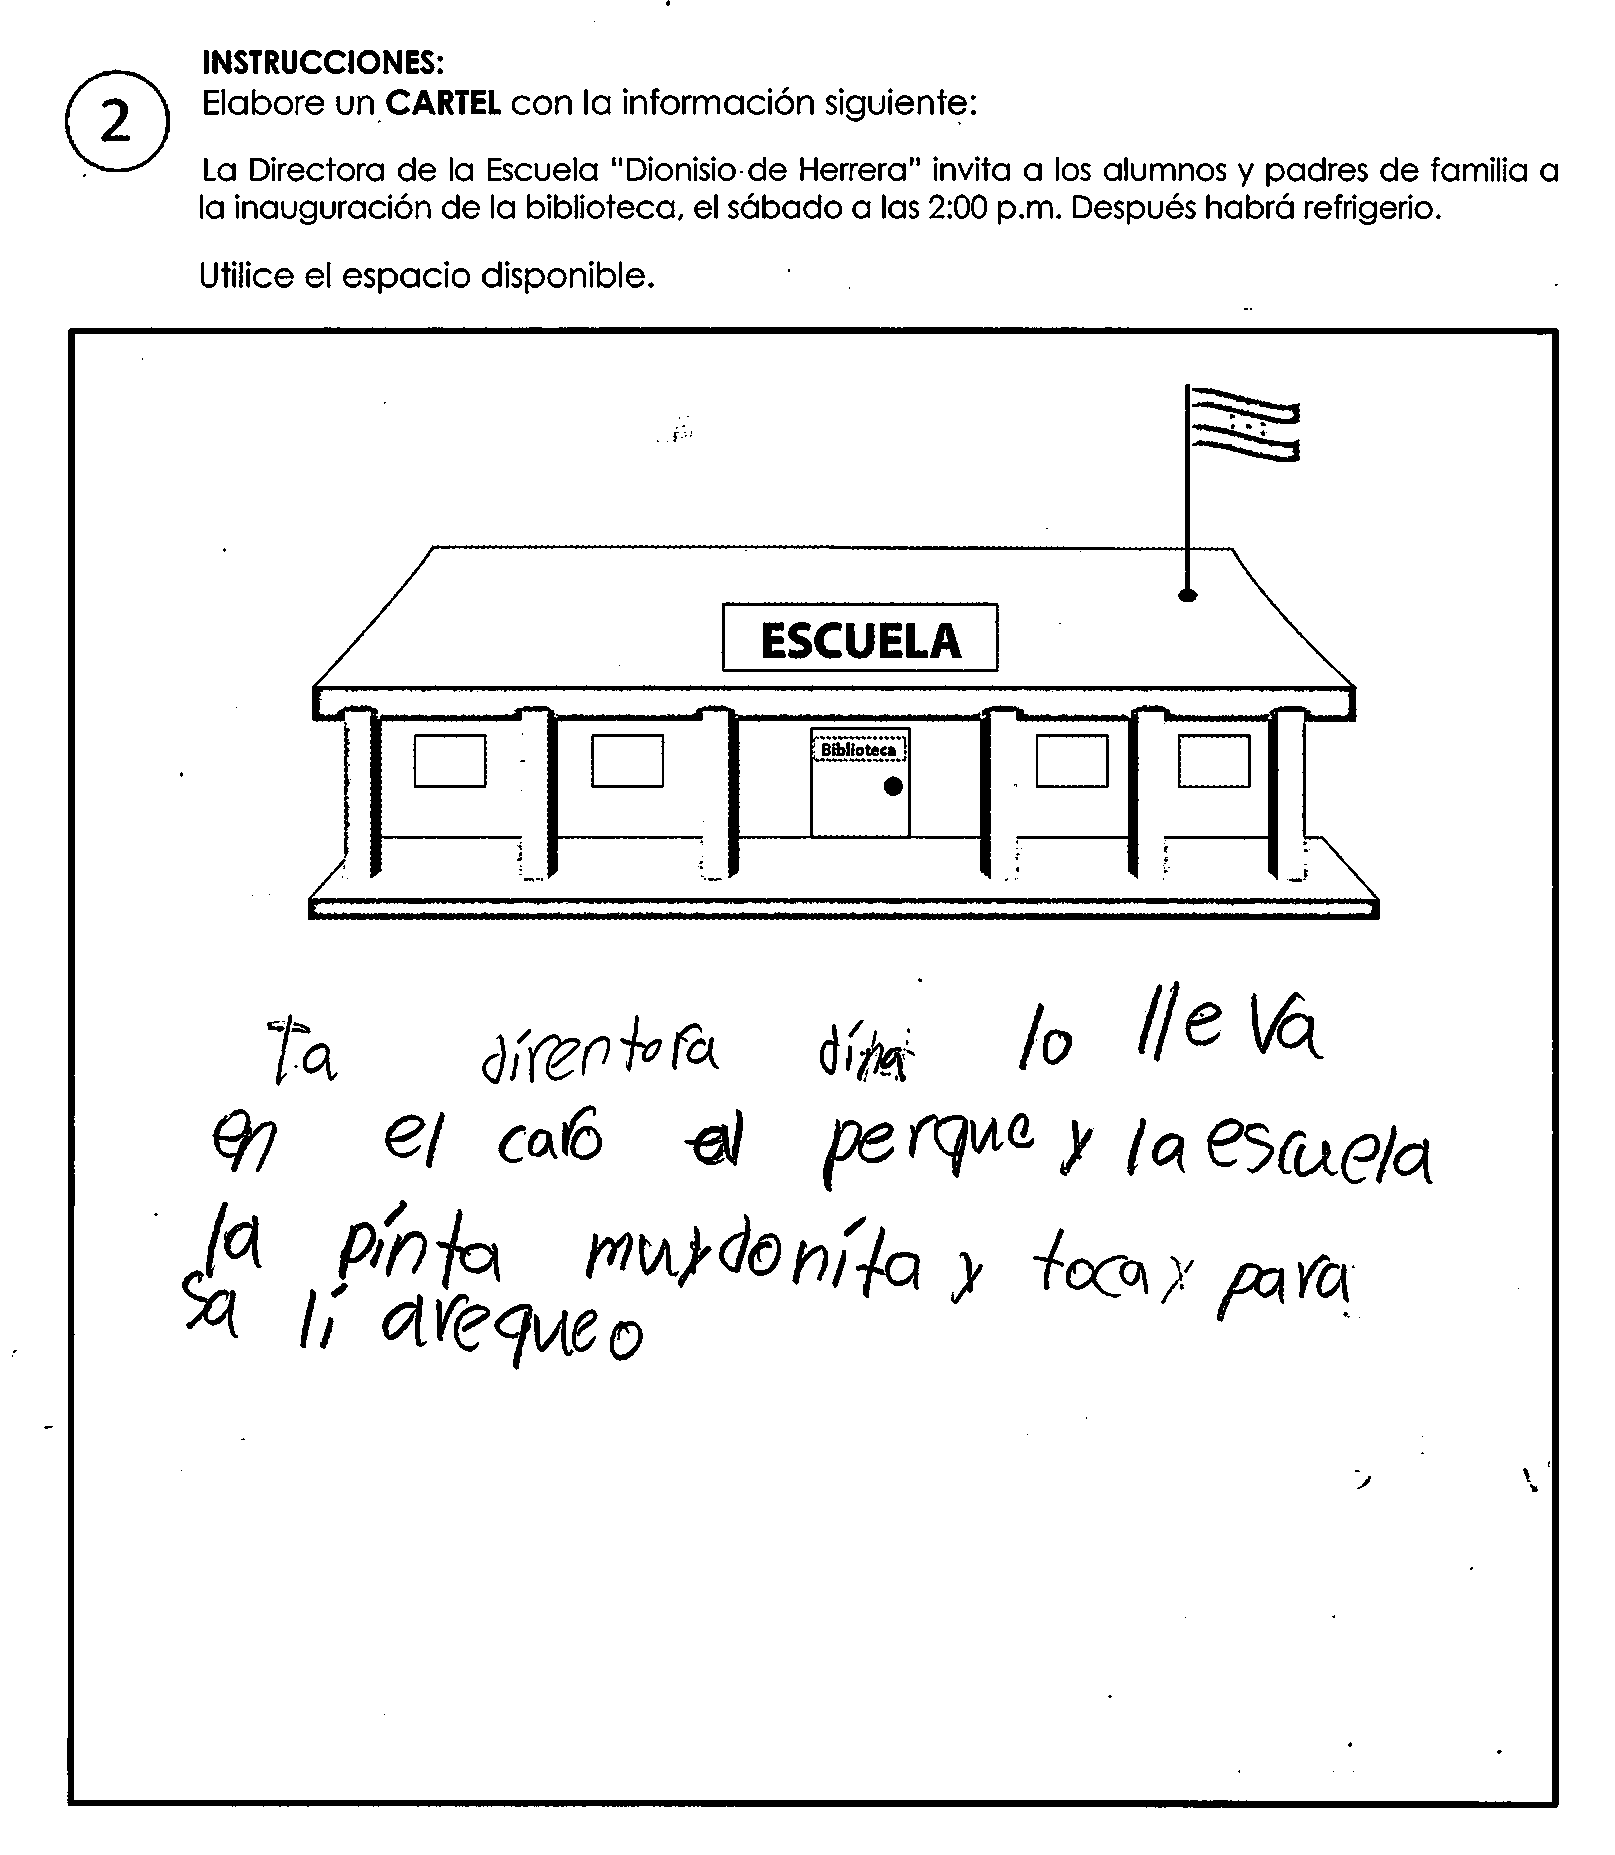 INSTRUCCIONES:
2
Elabore un CARTEL con la información siguiente:
La Directora de la Escuela "Dionisio de Herrera" invita a los alumnos y padres de familia a
la inauguración de la biblioteca, el sábado a las 2:00 p.m. Después habrá refrigerio.
Utilice el espacio disponible.
ESCUELA
Biblioteca
Ta dírentora lo lleva
en el caro el perque y la escuela
la pínta muydoníta y toca y para
sa lí arequeo